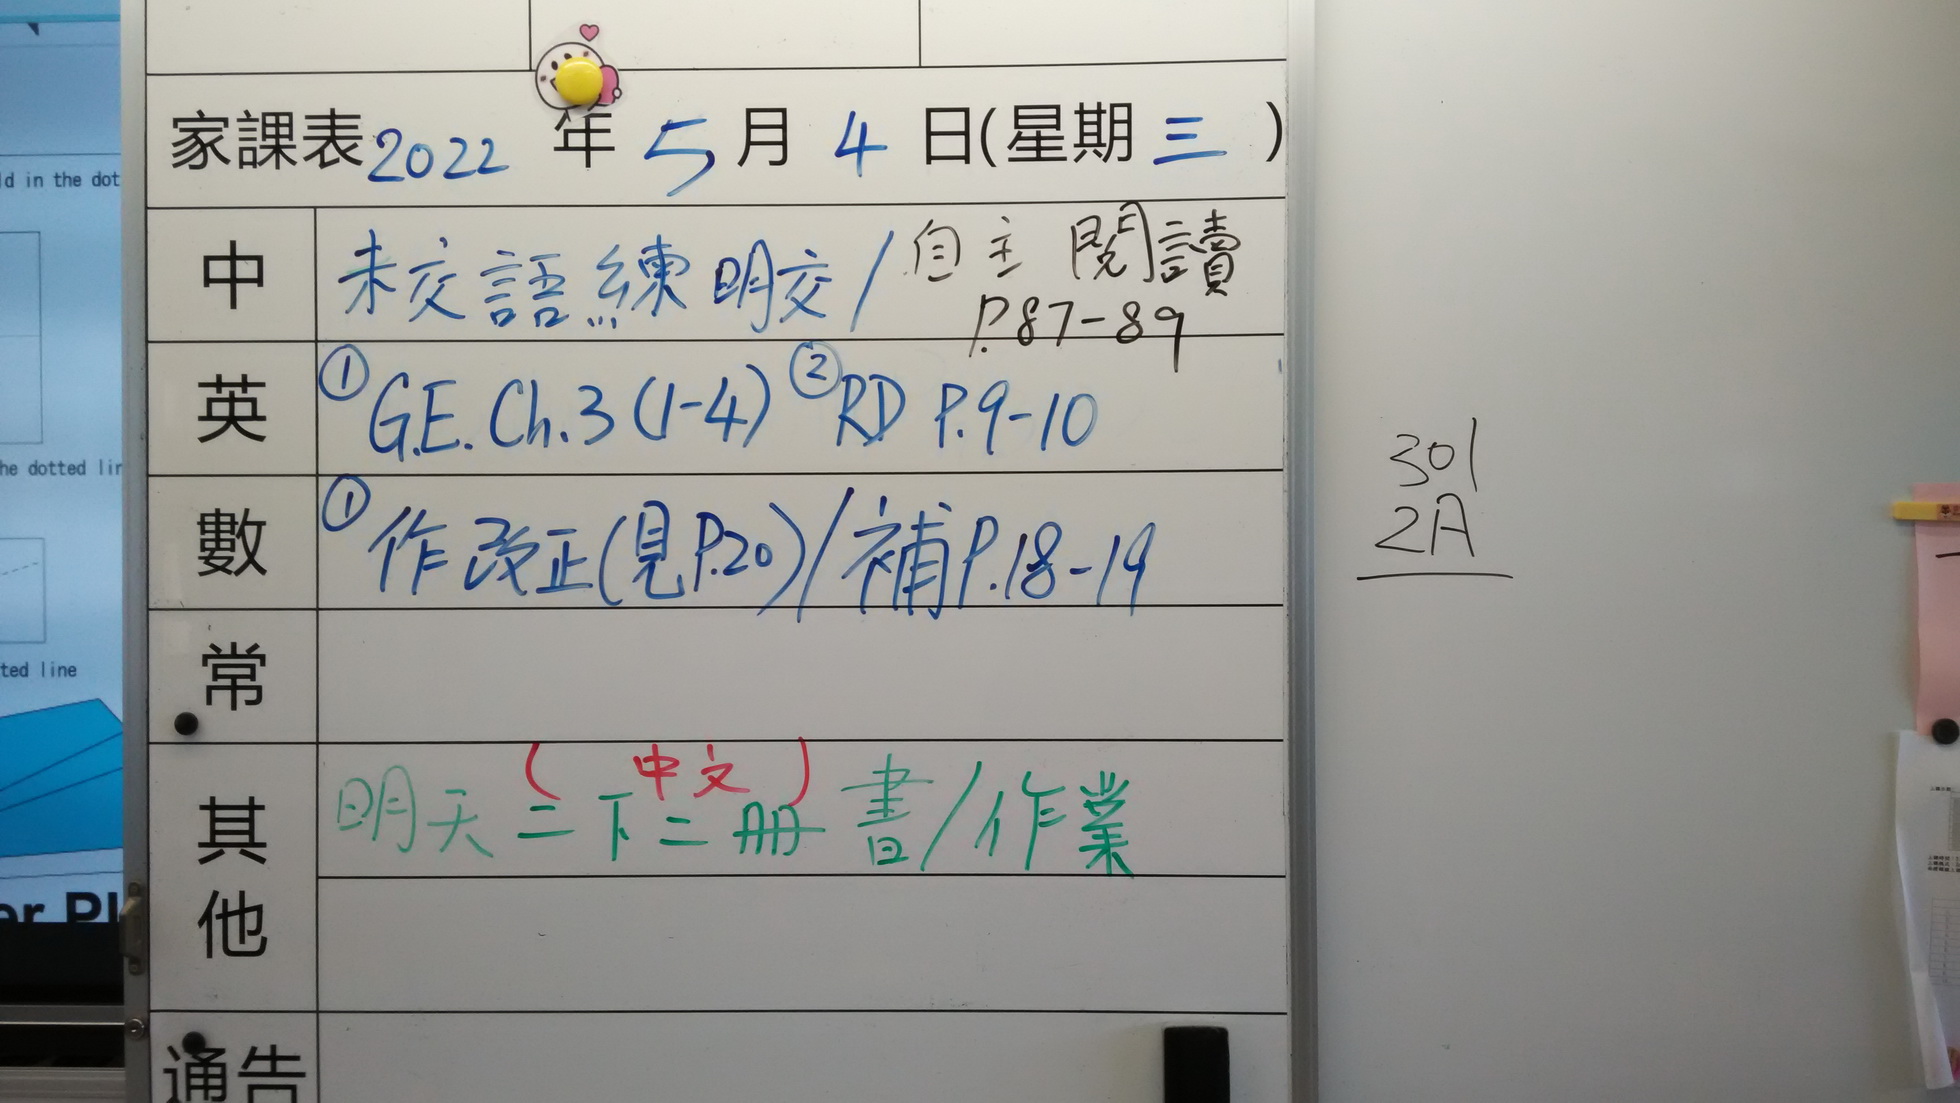 家課表 2022 年 5 月 4 日(星期 三 )
中 未交語練明交/自主閱讀
P.87-89
英 ①G.E. Ch.3 (1-4) ②RD P.9-10
數 ①作改正(見P.20)/補P.18-19
常
(中文)
其他 明天二下二册書/作業
通告
301
2A
d in the dot
he dotted lin
ted line
er Pl